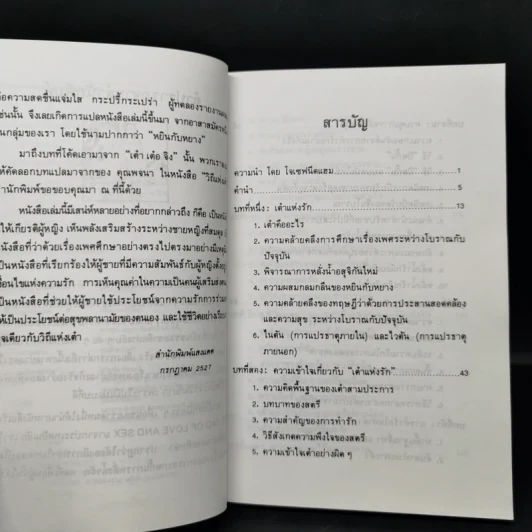 ือความสดชื่นแจ่มใส กระปรี้กระเปร่า ผู้ทดลองรายงานผล
เช่นนั้น จึงเลยเกิดการแปลหนังสือเล่มนี้ขึ้นมา จากอาสาสมัคร
ในกลุ่มของเรา โดยใช้นามปากกาว่า "หยินกับหยาง"
มาถึงบทที่โค้ดเอามาจาก "เต๋า เต๋อ จิง" นั้น พวกเรา
ได้คัดลอกบทแปลมาจากของ คุณพจนา ในหนังสือ "วิถีแห่งเต๋า"
สำนักพิมพ์ขอขอบคุณมา ณ ที่นี้ด้วย
หนังสือเล่มนี้มีเสน่ห์หลายอย่างที่อยากกล่าวถึง ก็คือ เป็นหนังสือ
ให้เกียรติผู้หญิง เห็นพลังเสริมสร้างระหว่างชายหญิงที่สมดุล
หนังสือที่ว่าด้วยเรื่องเพศศึกษาอย่างตรงไปตรงมาอย่าง
เป็นหนังสือที่เรียกร้องให้ผู้ชายที่มีความสัมพันธ์กับผู้หญิง
เงื่อนไขแห่งความรัก การเห็นคุณค่าในความเป็นคนผู้เสริม
เป็นหนังสือที่ช่วยให้ผู้ชายใช้ประโยชน์จากความรักการร่วม
ให้เป็นประโยชน์ต่อสุขพลานามัยของตนเอง และใช้ชีวิตอย่าง
ใจเดียวกับวิถีแห่งเต๋า
สำนักพิมพ์แสงแดด
กรกฎาคม 2527
สารบัญ
ความนำ โดย โจเซฟนีดแฮม 1
คำนำ 5
บทที่หนึ่ง: เต๋าแห่งรัก 13
1. เต๋าคืออะไร
2. ความคล้ายคลึงการศึกษาเรื่องเพศระหว่างโบราณกับ
ปัจจุบัน
3. พิจารณาการหลั่งน้ำอสุจิกันใหม่
4. ความผสมกลมกลืนของหยินกับหยาง
5. ความคล้ายคลึงของทฤษฎีว่าด้วยการประสานสอดคล้อง
และความสุข ระหว่างโบราณกับปัจจุบัน
6. ไนตัน (การแปรธาตุภายใน) และไวตัน (การแปรธาตุ
ภายนอก)
บทที่สอง: ความเข้าใจเกี่ยวกับ "เต๋าแห่งรัก" 43
1. ความคิดพื้นฐานของเต๋าสามประการ
2. บทบาทของสตรี
3. ความสำคัญของการทำรัก
4. วิธีสังเกตความพึงใจของสตรี
5. ความเข้าใจเต๋าอย่างผิด ๆ